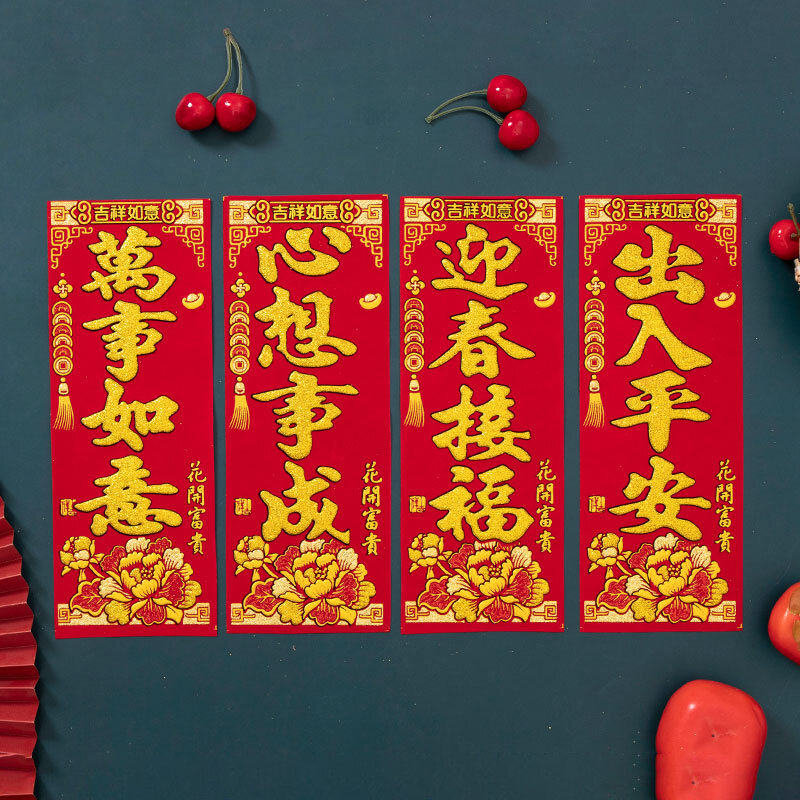 吉祥如意
萬事如意
花開富貴
吉祥如意
心想事成
花開富貴
吉祥如意
迎春接福
花開富貴
吉祥如意
出入平安
花開富貴